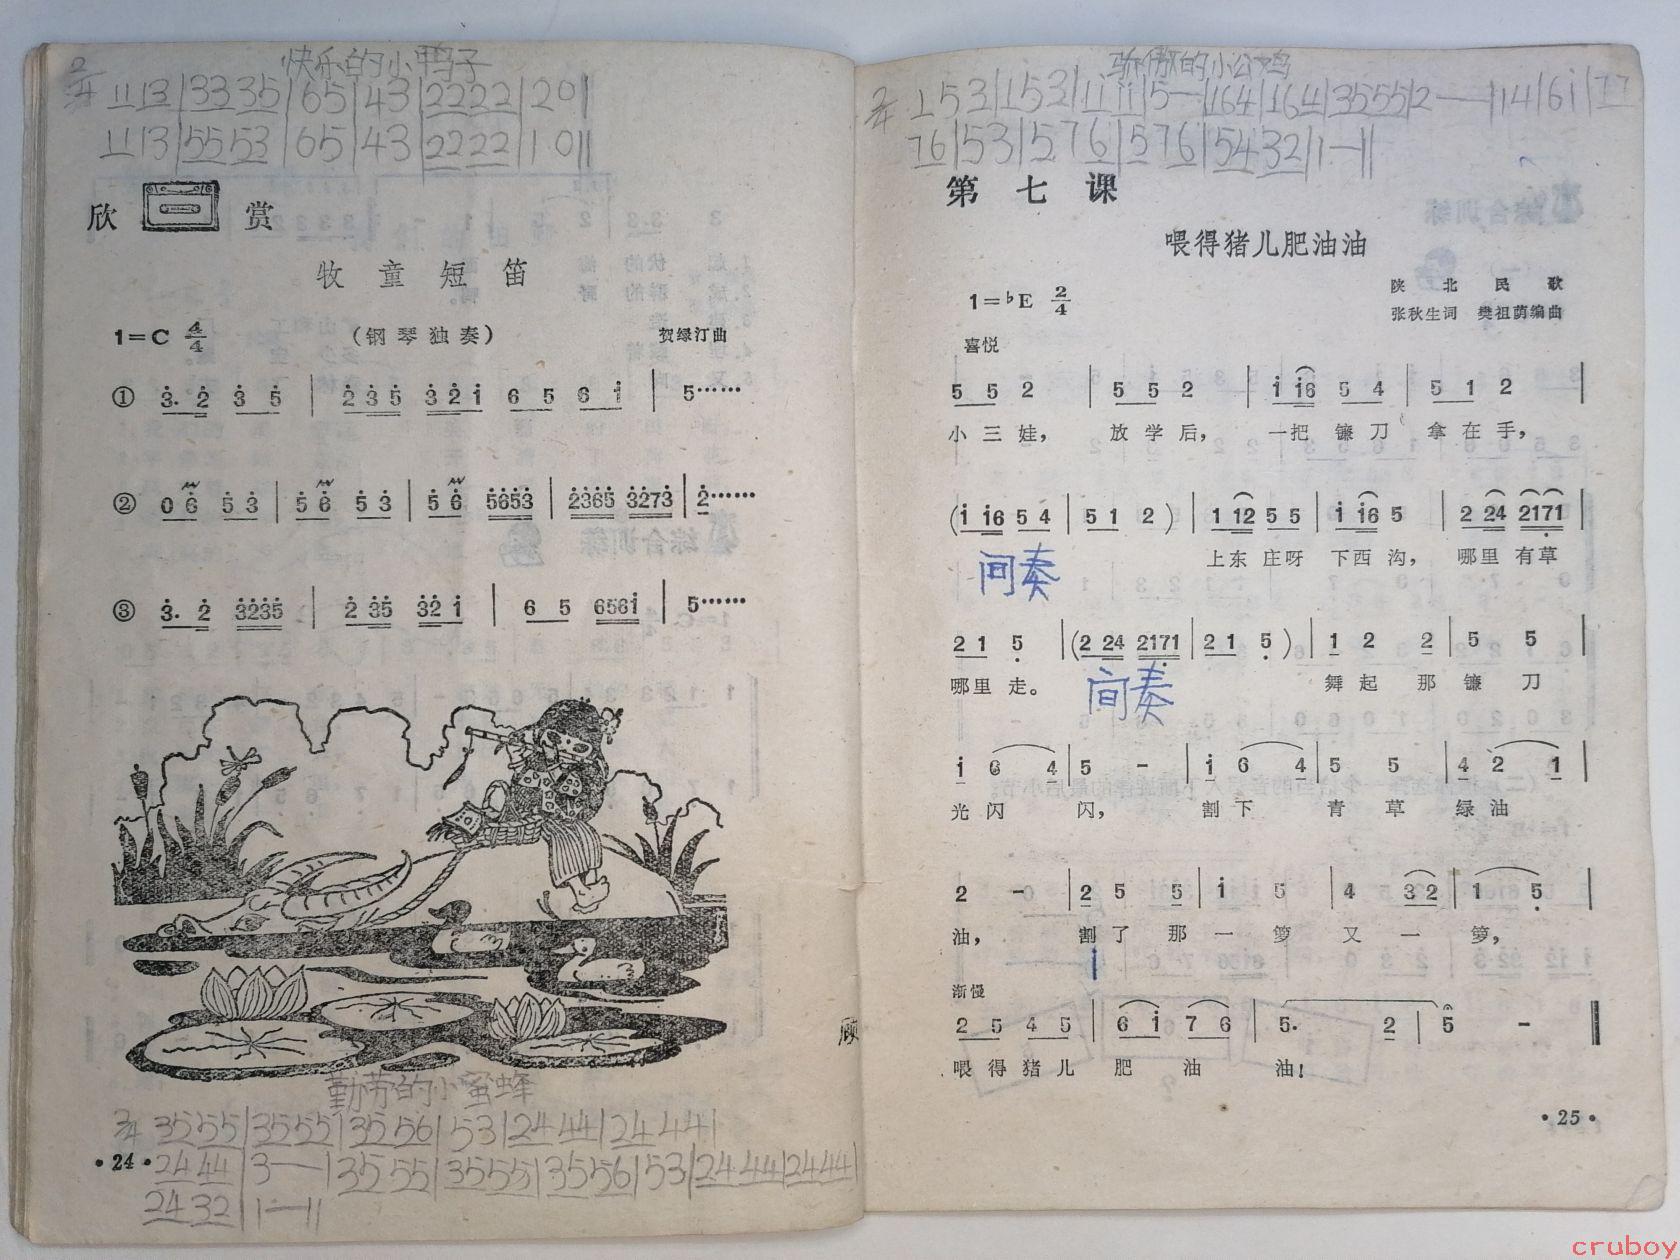 快乐的小鸭子
2/4 11 13 | 33 35 | 65 | 43 | 22 22 | 20 ||
11 13 | 55 53 | 65 | 43 | 22 22 | 10 ||
欣赏
牧童短笛
1=C 4/4 （钢琴独奏） 贺绿汀曲
① 3̇. 2̇ 3̇ 5̇ | 2̇ 3̇ 5̇ 3̇ 2̇ i 6 5 6 i | 5……
② 0 6̇ 5̇ 3̇ | 5̇ 6̇ 5̇ 3̇ | 5̇ 6̇ 5̇6̇5̇3̇ | 2̇3̇6̇5̇ 3̇2̇7̇3̇ | 2̇……
③ 3̇. 2̇ 3̇2̇3̇5̇ | 2̇ 3̇5̇ 3̇2̇ i | 6 5 656i | 5……
勤劳的小蜜蜂
2/4 35 55 | 35 55 | 35 56 | 53 | 24 44 | 24 44 |
24 44 | 3— | 35 55 | 35 55 | 35 56 | 53 | 24 44 | 24 44 |
24 32 | 1— ||
·24·
骄傲的小公鸡
2/4 153 | 153 | ii ii | 5— | 164 | 164 | 3555 | 2— | 14 | 6i | 77
76 | 53 | 5 76 | 5 76 | 54 32 | 1— ||
第七课
喂得猪儿肥油油
陕北民歌
1=♭E 2/4 张秋生词 樊祖荫编曲
喜悦
5 5 2 | 5 5 2 | i i6 5 4 | 5 1 2 |
小三娃， 放学后， 一把镰刀 拿在手，
(i i6 5 4 | 5 1 2) | 1 12 5 5 | i i6 5 | 2 24 2171 |
间奏 上东庄呀 下西沟， 哪里有草
2 1 5̣ | (2 24 2171 | 2 1 5̣) | 1 2 2 | 5 5 |
哪里走。 间奏 舞起那镰刀
i 6 4 | 5 - | i 6 4 | 5 5 | 4 2 1 |
光闪闪， 割下青草绿油
2 - | 2 5 5 | i 5 | 4 3 2 | 1 5̣ |
油， 割了那一箩又一箩，
渐慢
2 5 4 5 | 6 i 7 6 | 5. 2 | 5 - ||
喂得猪儿肥油油！
·25·
cruboy